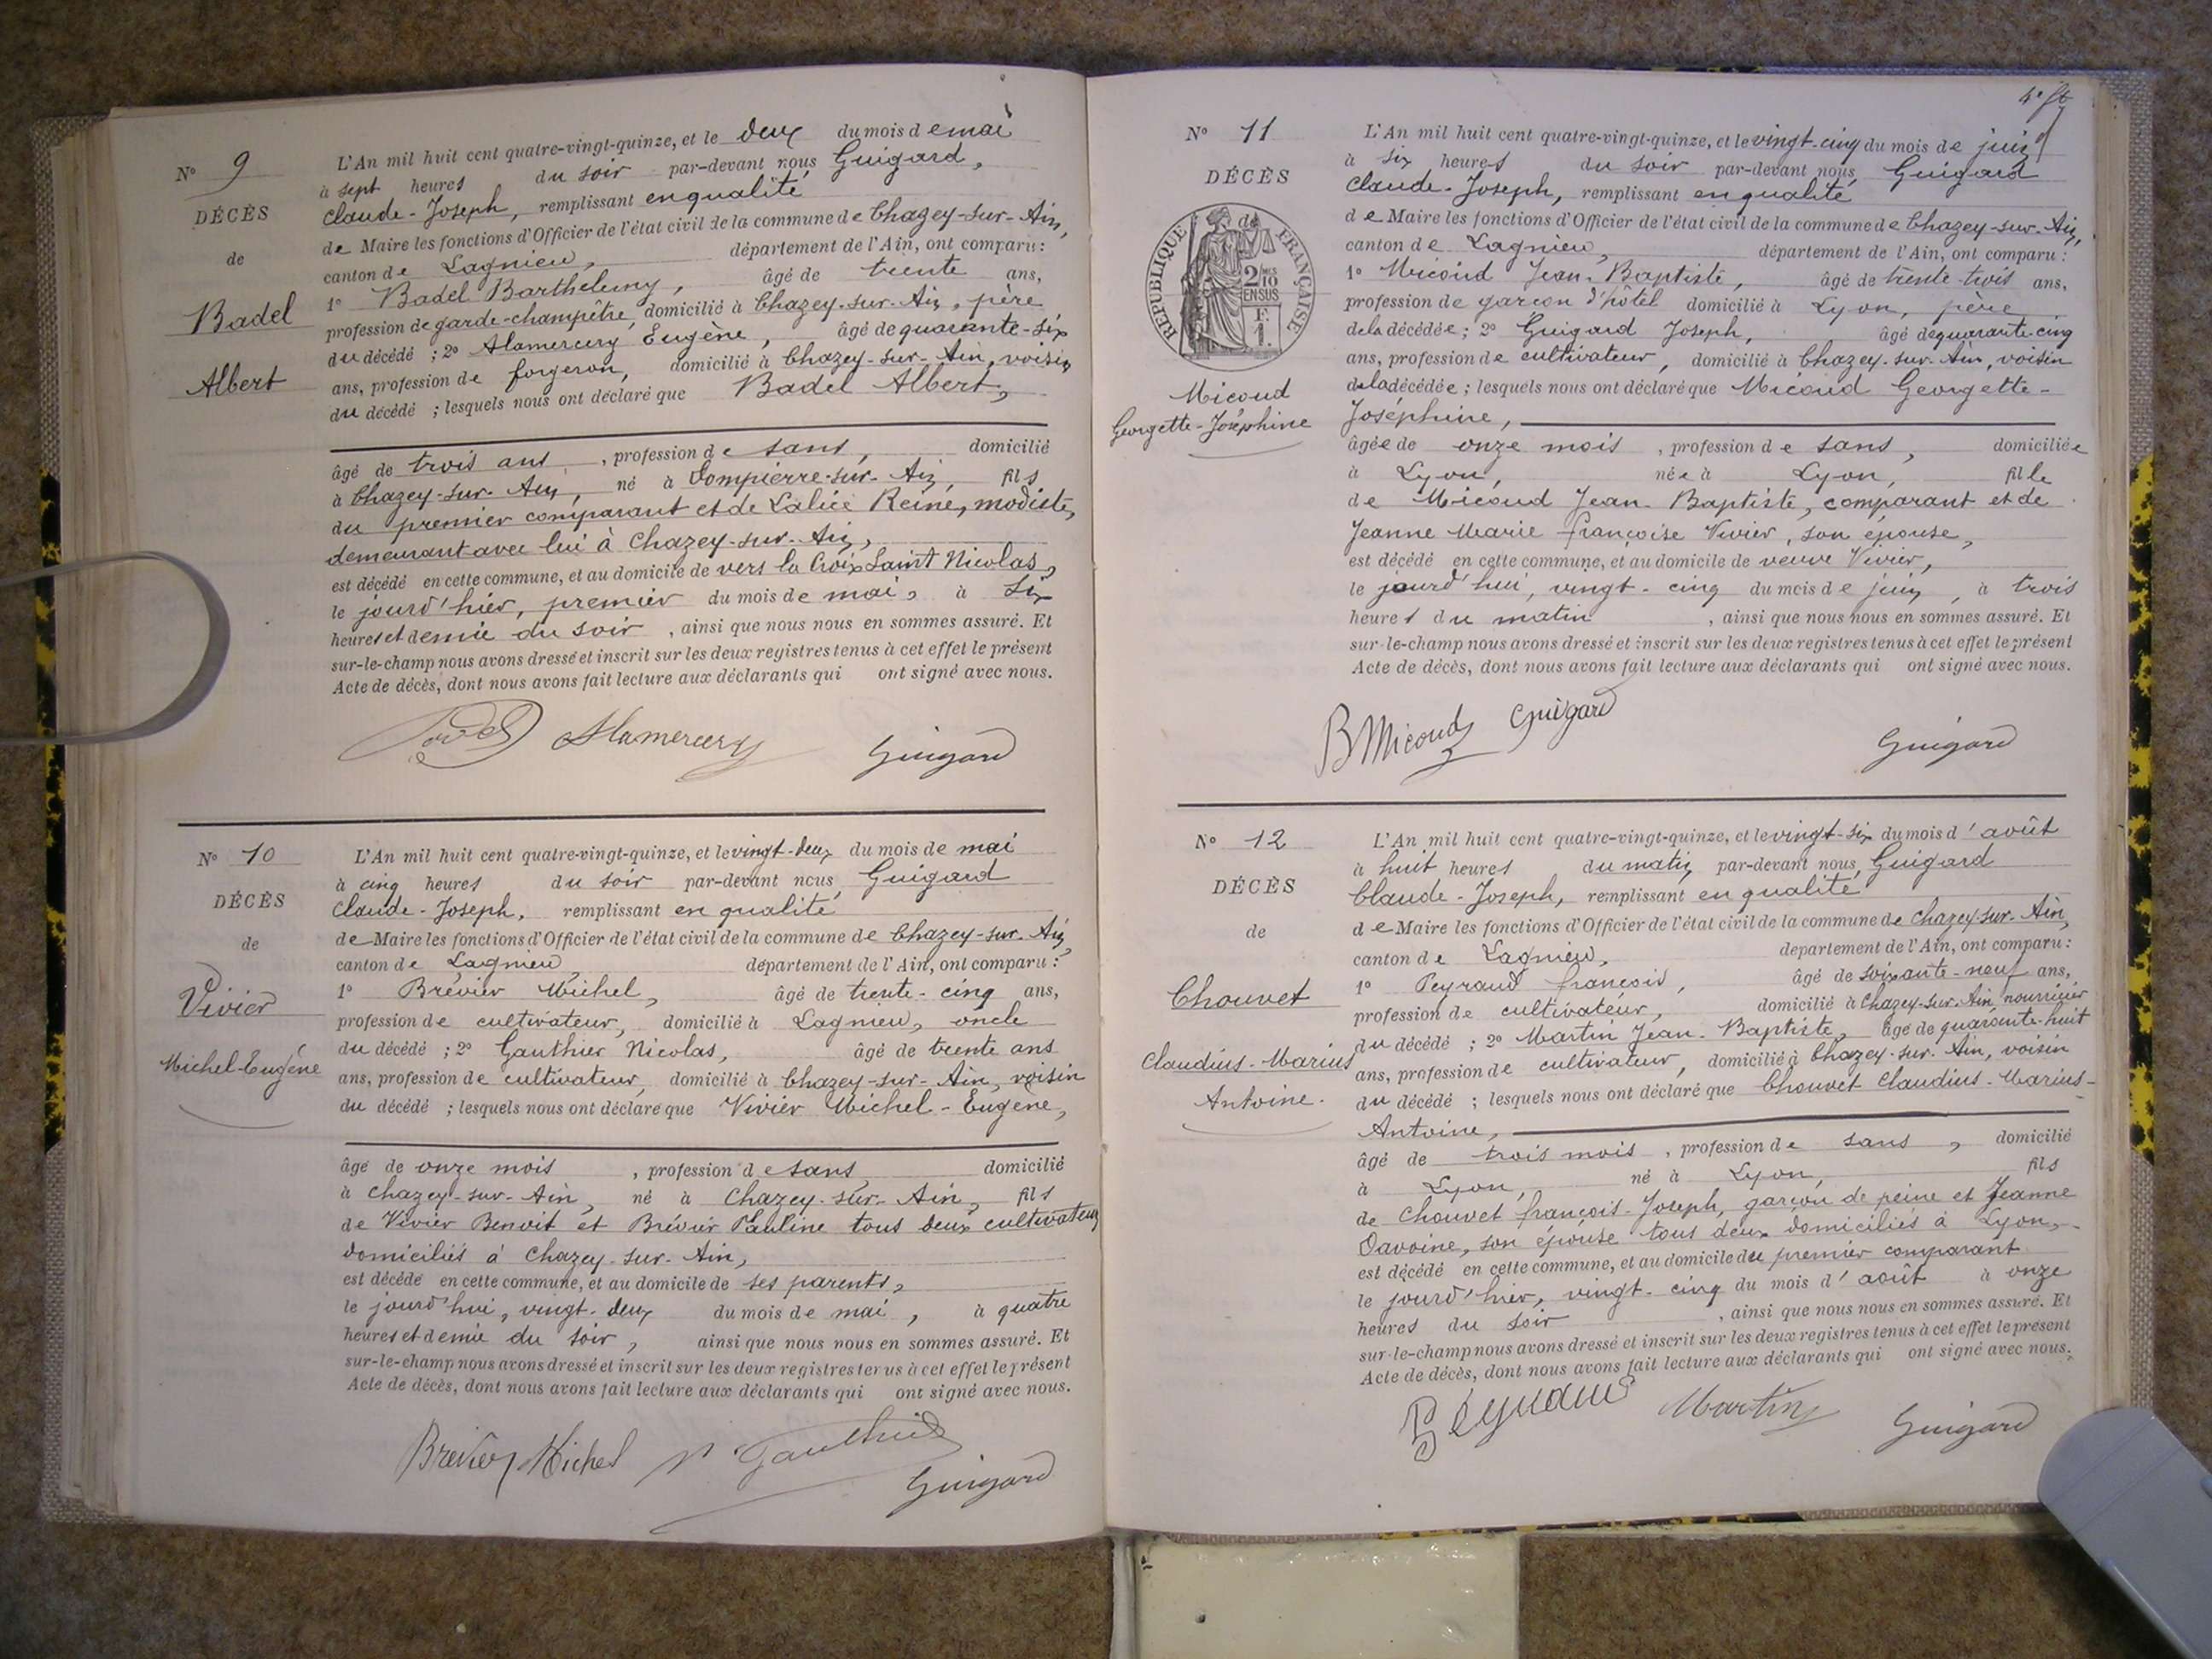 N° 9
DÉCÈS
de
Badel
Albert
L'An mil huit cent quatre-vingt-quinze, et le deux du mois de mai
à sept heures du soir par-devant nous Guigard,
Claude-Joseph, remplissant en qualité
de Maire les fonctions d'Officier de l'état civil de la commune de Chazey-sur-Ain,
canton de Lagnieu, département de l'Ain, ont comparu :
1° Badel Barthelemy, âgé de trente ans,
profession de garde-champêtre, domicilié à Chazey-sur-Ain, père
du décédé ; 2° Alamercery Eugène, âgé de quarante-six
ans, profession de forgeron, domicilié à Chazey-sur-Ain, voisin
du décédé ; lesquels nous ont déclaré que Badel Albert,
âgé de trois ans, profession de sans, domicilié
à Chazey-sur-Ain, né à Dompierre-sur-Ain, fils
du premier comparant et de Reine, modiste,
demeurant avec lui à Chazey-sur-Ain,
est décédé en cette commune, et au domicile de vers la Croix Saint Nicolas,
le jourd'hier, premier du mois de mai, à six
heures et demie du soir, ainsi que nous nous en sommes assuré. Et
sur-le-champ nous avons dressé et inscrit sur les deux registres tenus à cet effet le présent
Acte de décès, dont nous avons fait lecture aux déclarants qui ont signé avec nous.
Badel Alamercery Guigard
N° 10
DÉCÈS
de
Vivier
Michel-Eugène
L'An mil huit cent quatre-vingt-quinze, et le vingt-deux du mois de mai
à cinq heures du soir par-devant nous, Guigard
Claude-Joseph, remplissant en qualité
de Maire les fonctions d'Officier de l'état civil de la commune de Chazey-sur-Ain
canton de Lagnieu, département de l'Ain, ont comparu :
1° Brévier Michel, âgé de trente-cinq ans,
profession de cultivateur, domicilié à Lagnieu, oncle
du décédé ; 2° Gauthier Nicolas, âgé de trente ans
ans, profession de cultivateur, domicilié à Chazey-sur-Ain, voisin
du décédé ; lesquels nous ont déclaré que Vivier Michel-Eugène,
âgé de onze mois, profession de sans, domicilié
à Chazey-sur-Ain, né à Chazey-sur-Ain, fils
de Vivier Benoit et Brévier Pauline tous deux cultivateurs
domiciliés à Chazey-sur-Ain,
est décédé en cette commune, et au domicile de ses parents,
le jourd'hui, vingt-deux du mois de mai, à quatre
heures et demie du soir, ainsi que nous nous en sommes assuré. Et
sur-le-champ nous avons dressé et inscrit sur les deux registres tenus à cet effet le présent
Acte de décès, dont nous avons fait lecture aux déclarants qui ont signé avec nous.
Brévier Michel N Gauthier
Guigard
N° 11
DÉCÈS
RÉPUBLIQUE FRANÇAISE
2/10 EN SUS
F. 1.
Micoud
Georgette-Joséphine
L'An mil huit cent quatre-vingt-quinze, et le vingt-cinq du mois de juin
à six heures du soir par-devant nous, Guigard
Claude-Joseph, remplissant en qualité
de Maire les fonctions d'Officier de l'état civil de la commune de Chazey-sur-Ain,
canton de Lagnieu, département de l'Ain, ont comparu :
1° Micoud Jean-Baptiste, âgé de trente-trois ans,
profession de garçon d'hôtel domicilié à Lyon, père
de la décédée ; 2° Guigard Joseph, âgé de quarante-cinq
ans, profession de cultivateur, domicilié à Chazey-sur-Ain, voisin
de la décédée ; lesquels nous ont déclaré que Micoud Georgette-
Joséphine,
âgée de onze mois, profession de sans, domiciliée
à Lyon, née à Lyon, fille
de Micoud Jean-Baptiste, comparant et de
Jeanne Marie Françoise Vivier, son épouse,
est décédé en cette commune, et au domicile de veuve Vivier,
le jourd'hui, vingt-cinq du mois de juin, à trois
heures du matin, ainsi que nous nous en sommes assuré. Et
sur-le-champ nous avons dressé et inscrit sur les deux registres tenus à cet effet le présent
Acte de décès, dont nous avons fait lecture aux déclarants qui ont signé avec nous.
B Micoud Guigard Guigard
N° 12
DÉCÈS
de
Chouvet
Claudius-Marius
Antoine.
L'An mil huit cent quatre-vingt-quinze, et le vingt-six du mois d'août
à huit heures du matin par-devant nous, Guigard
Claude-Joseph, remplissant en qualité
de Maire les fonctions d'Officier de l'état civil de la commune de Chazey-sur-Ain,
canton de Lagnieu, département de l'Ain, ont comparu :
1° Peyraud François, âgé de soixante-neuf ans,
profession de cultivateur, domicilié à Chazey-sur-Ain nourricier
du décédé ; 2° Martin Jean-Baptiste, âgé de quarante-huit
ans, profession de cultivateur, domicilié à Chazey-sur-Ain, voisin
du décédé ; lesquels nous ont déclaré que Chouvet Claudius-Marius-
Antoine,
âgé de trois mois, profession de sans, domicilié
à Lyon, né à Lyon, fils
de Chouvet François-Joseph, garçon de peine et Jeanne
Davoine, son épouse tous deux domiciliés à Lyon,
est décédé en cette commune, et au domicile du premier comparant
le jourd'hier, vingt-cinq du mois d'août à onze
heures du soir, ainsi que nous nous en sommes assuré. Et
sur-le-champ nous avons dressé et inscrit sur les deux registres tenus à cet effet le présent
Acte de décès, dont nous avons fait lecture aux déclarants qui ont signé avec nous.
Peyraud Martin Guigard